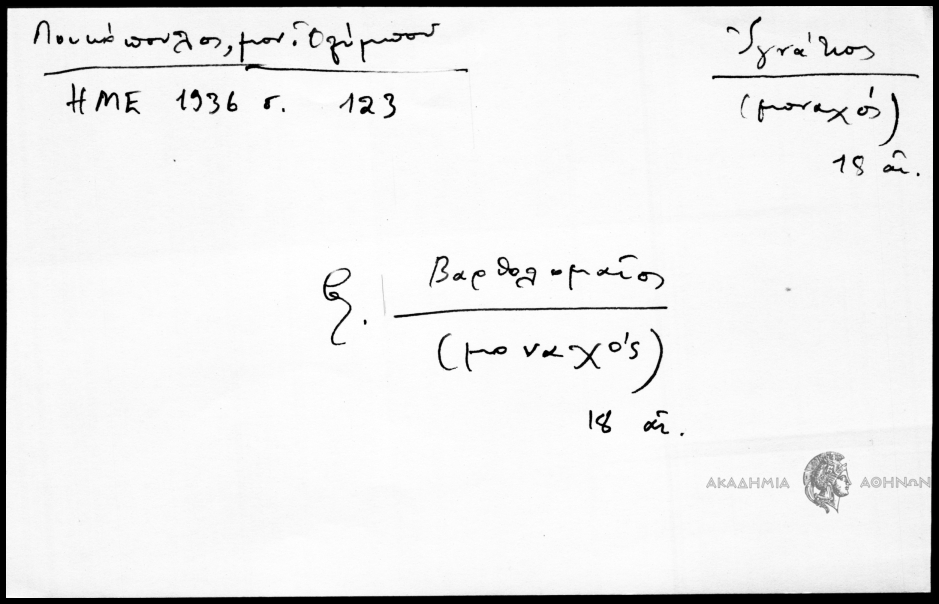 Λουκόπουλος, μον. Ὀλύμπου
Ἰγνάτιος
ΗΜΕ 1936 σ. 123
(μοναχός)
18 αἰ.
Βαρθολομαῖος
(μοναχός)
18 αἰ.
ΑΚΑΔΗΜΙΑ ΑΘΗΝΩΝ